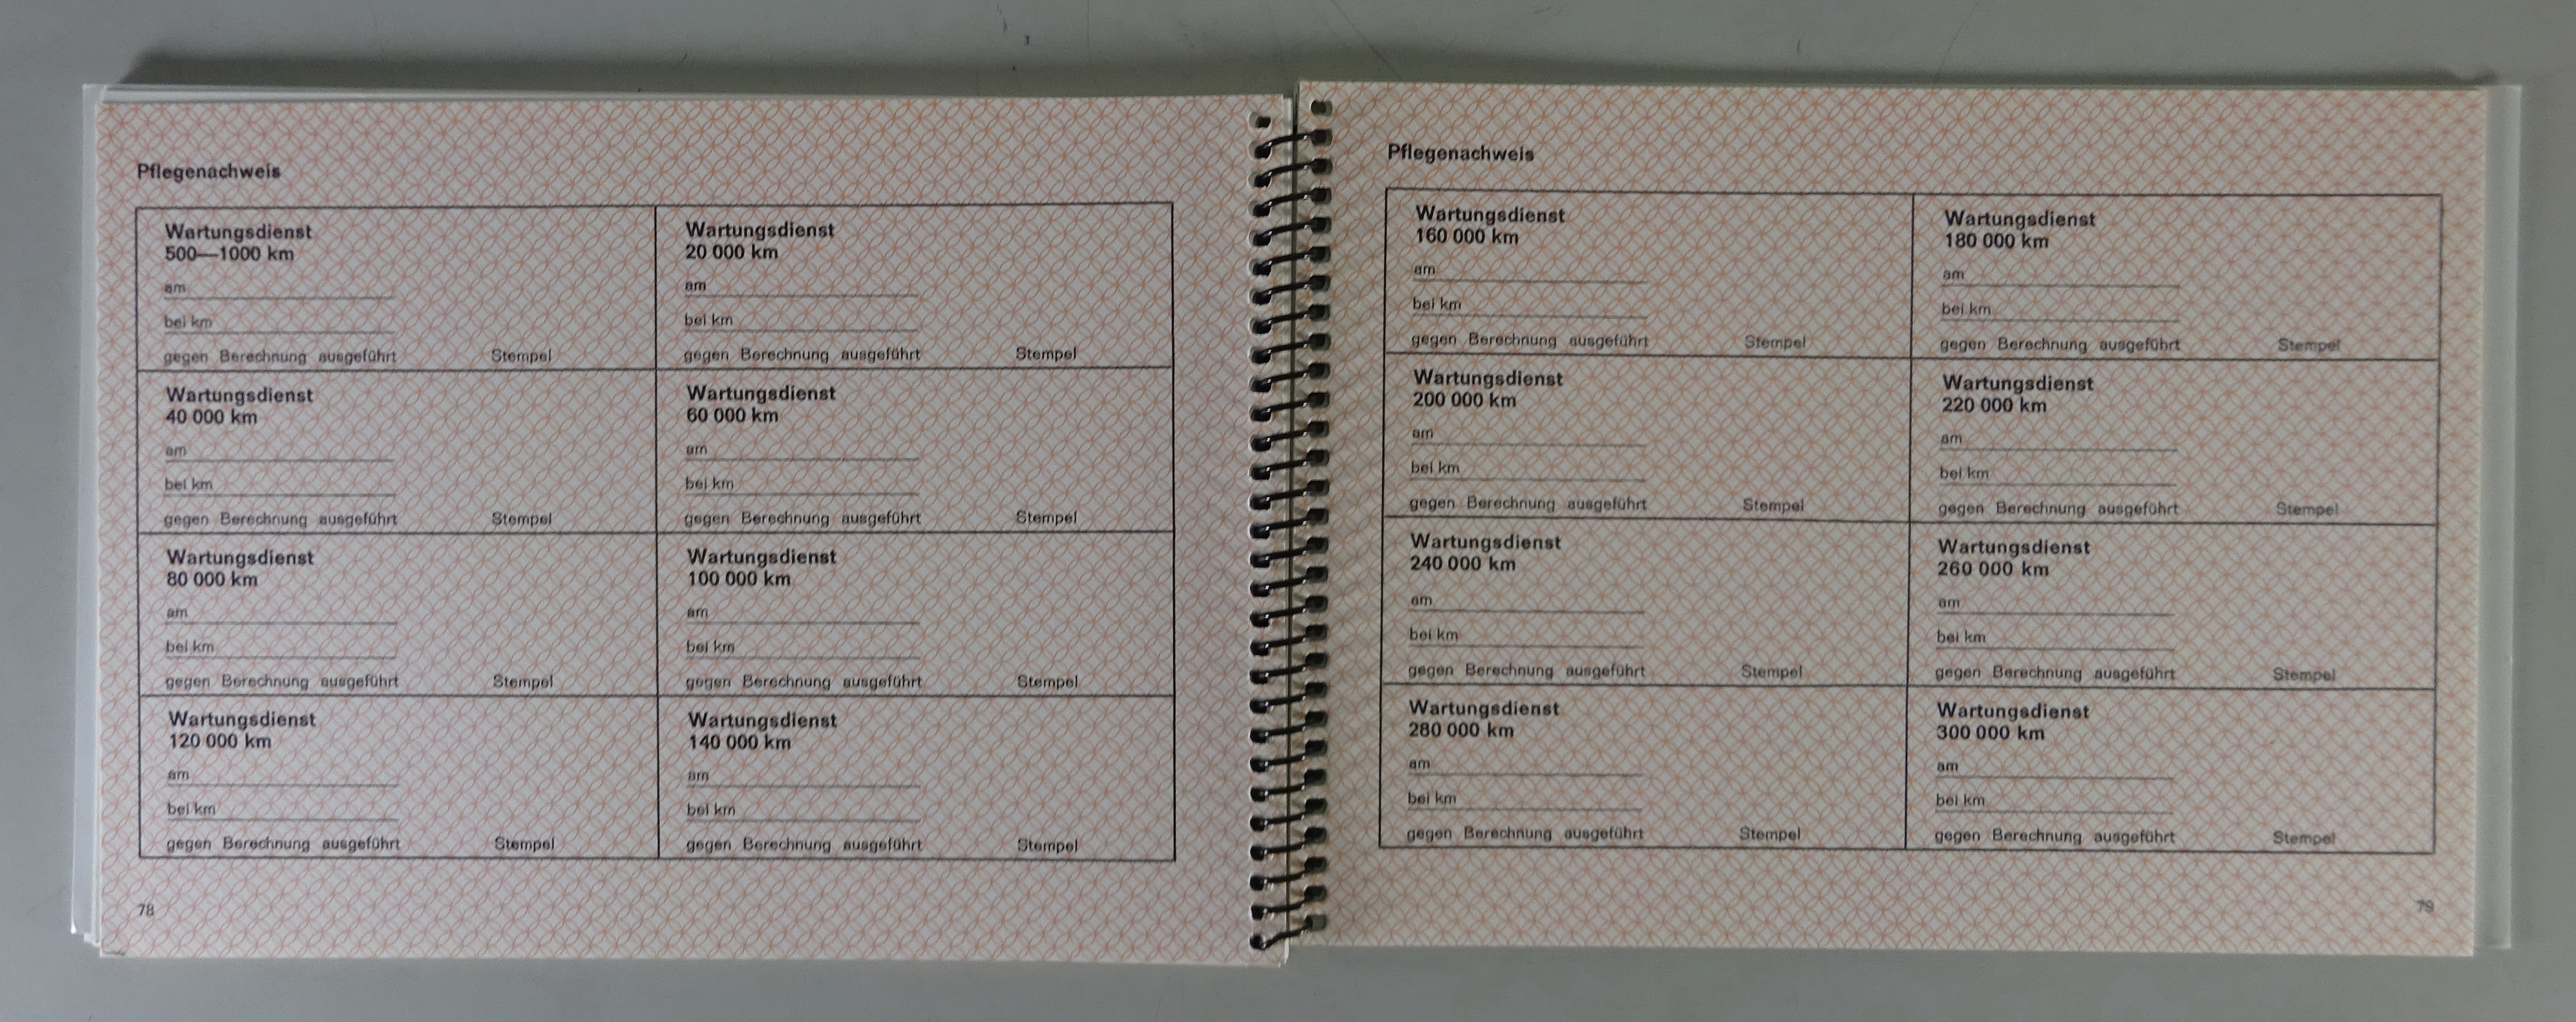 Pflegenachweis
Wartungsdienst
500—1000 km
am
bei km
gegen Berechnung ausgeführt Stempel
Wartungsdienst
20 000 km
am
bei km
gegen Berechnung ausgeführt Stempel
Wartungsdienst
40 000 km
am
bei km
gegen Berechnung ausgeführt Stempel
Wartungsdienst
60 000 km
am
bei km
gegen Berechnung ausgeführt Stempel
Wartungsdienst
80 000 km
am
bei km
gegen Berechnung ausgeführt Stempel
Wartungsdienst
100 000 km
am
bei km
gegen Berechnung ausgeführt Stempel
Wartungsdienst
120 000 km
am
bei km
gegen Berechnung ausgeführt Stempel
Wartungsdienst
140 000 km
am
bei km
gegen Berechnung ausgeführt Stempel
78
Pflegenachweis
Wartungsdienst
160 000 km
am
bei km
gegen Berechnung ausgeführt Stempel
Wartungsdienst
180 000 km
am
bei km
gegen Berechnung ausgeführt Stempel
Wartungsdienst
200 000 km
am
bei km
gegen Berechnung ausgeführt Stempel
Wartungsdienst
220 000 km
am
bei km
gegen Berechnung ausgeführt Stempel
Wartungsdienst
240 000 km
am
bei km
gegen Berechnung ausgeführt Stempel
Wartungsdienst
260 000 km
am
bei km
gegen Berechnung ausgeführt Stempel
Wartungsdienst
280 000 km
am
bei km
gegen Berechnung ausgeführt Stempel
Wartungsdienst
300 000 km
am
bei km
gegen Berechnung ausgeführt Stempel
79